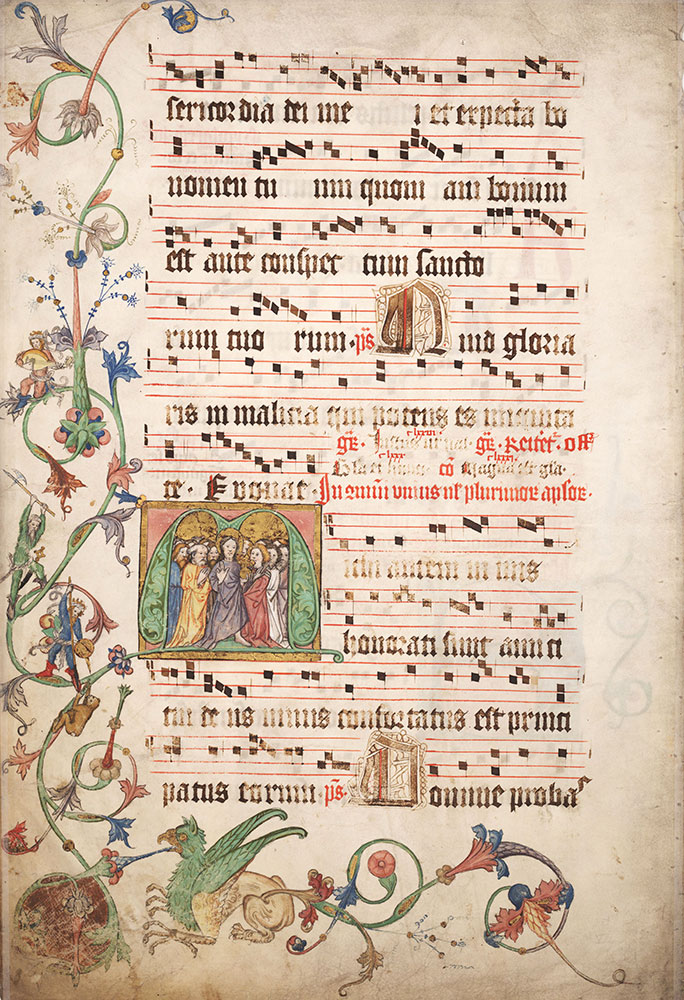 sericordia dei me i et expecta bo
nomen tu um quoni am bonum
est ante conspec tum sancto
rum tuo rum. ps Quid gloria
ris in malicia qui potens es iniquita
gr. gr. off
te. Evovae. In omni unius vel plurimorum apostolorum.
ihi autem in nis
honorati sunt ami ci
tui de us nimis confortatus est princi
patus eorum. ps. Domine proba